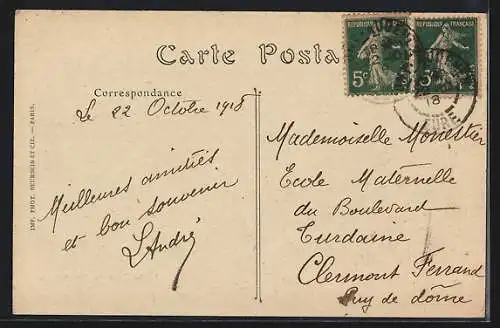 Carte Posta
RÉPUBLIQUE FRANÇAISE
5c
RÉPUBLIQUE FRANÇAISE
18
Correspondance
Le 22 Octobre 1918
Meilleures amitiés
et bon souvenir
L'André
Mademoiselle
Ecole Maternelle
du Boulevard
Turdaine
Clermont Ferrand
Puy de dôme
IMP. PHOT. NEURDEIN ET CIE. — PARIS.